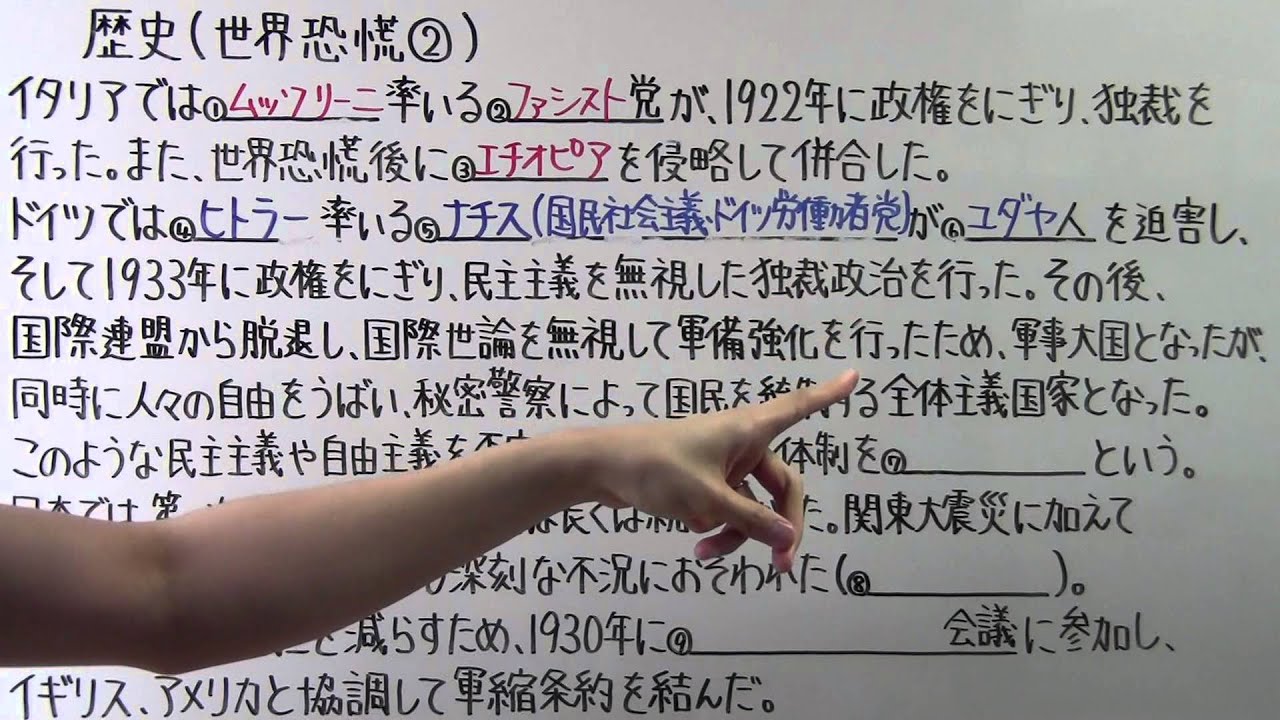 歴史(世界恐慌②)
イタリアでは①ムッソリーニ率いる②ファシスト党が、1922年に政権をにぎり、独裁を
行った。また、世界恐慌後に③エチオピアを侵略して併合した。
ドイツでは④ヒトラー率いる⑤ナチス(国民社会主義ドイツ労働者党)が⑥ユダヤ人を迫害し、
そして1933年に政権をにぎり、民主主義を無視した独裁政治を行った。その後、
国際連盟から脱退し、国際世論を無視して軍備強化を行ったため、軍事大国となったが、
同時に人々の自由をうばい、秘密警察によって国民を統制する全体主義国家となった。
このような民主主義や自由主義を 体制を⑦ という。
日本では、第 は長くは続 た。関東大震災に加えて
深刻な不況におそわれた(⑧ )。
を減らすため、1930年に⑨ 会議に参加し、
イギリス、アメリカと協調して軍縮条約を結んだ。